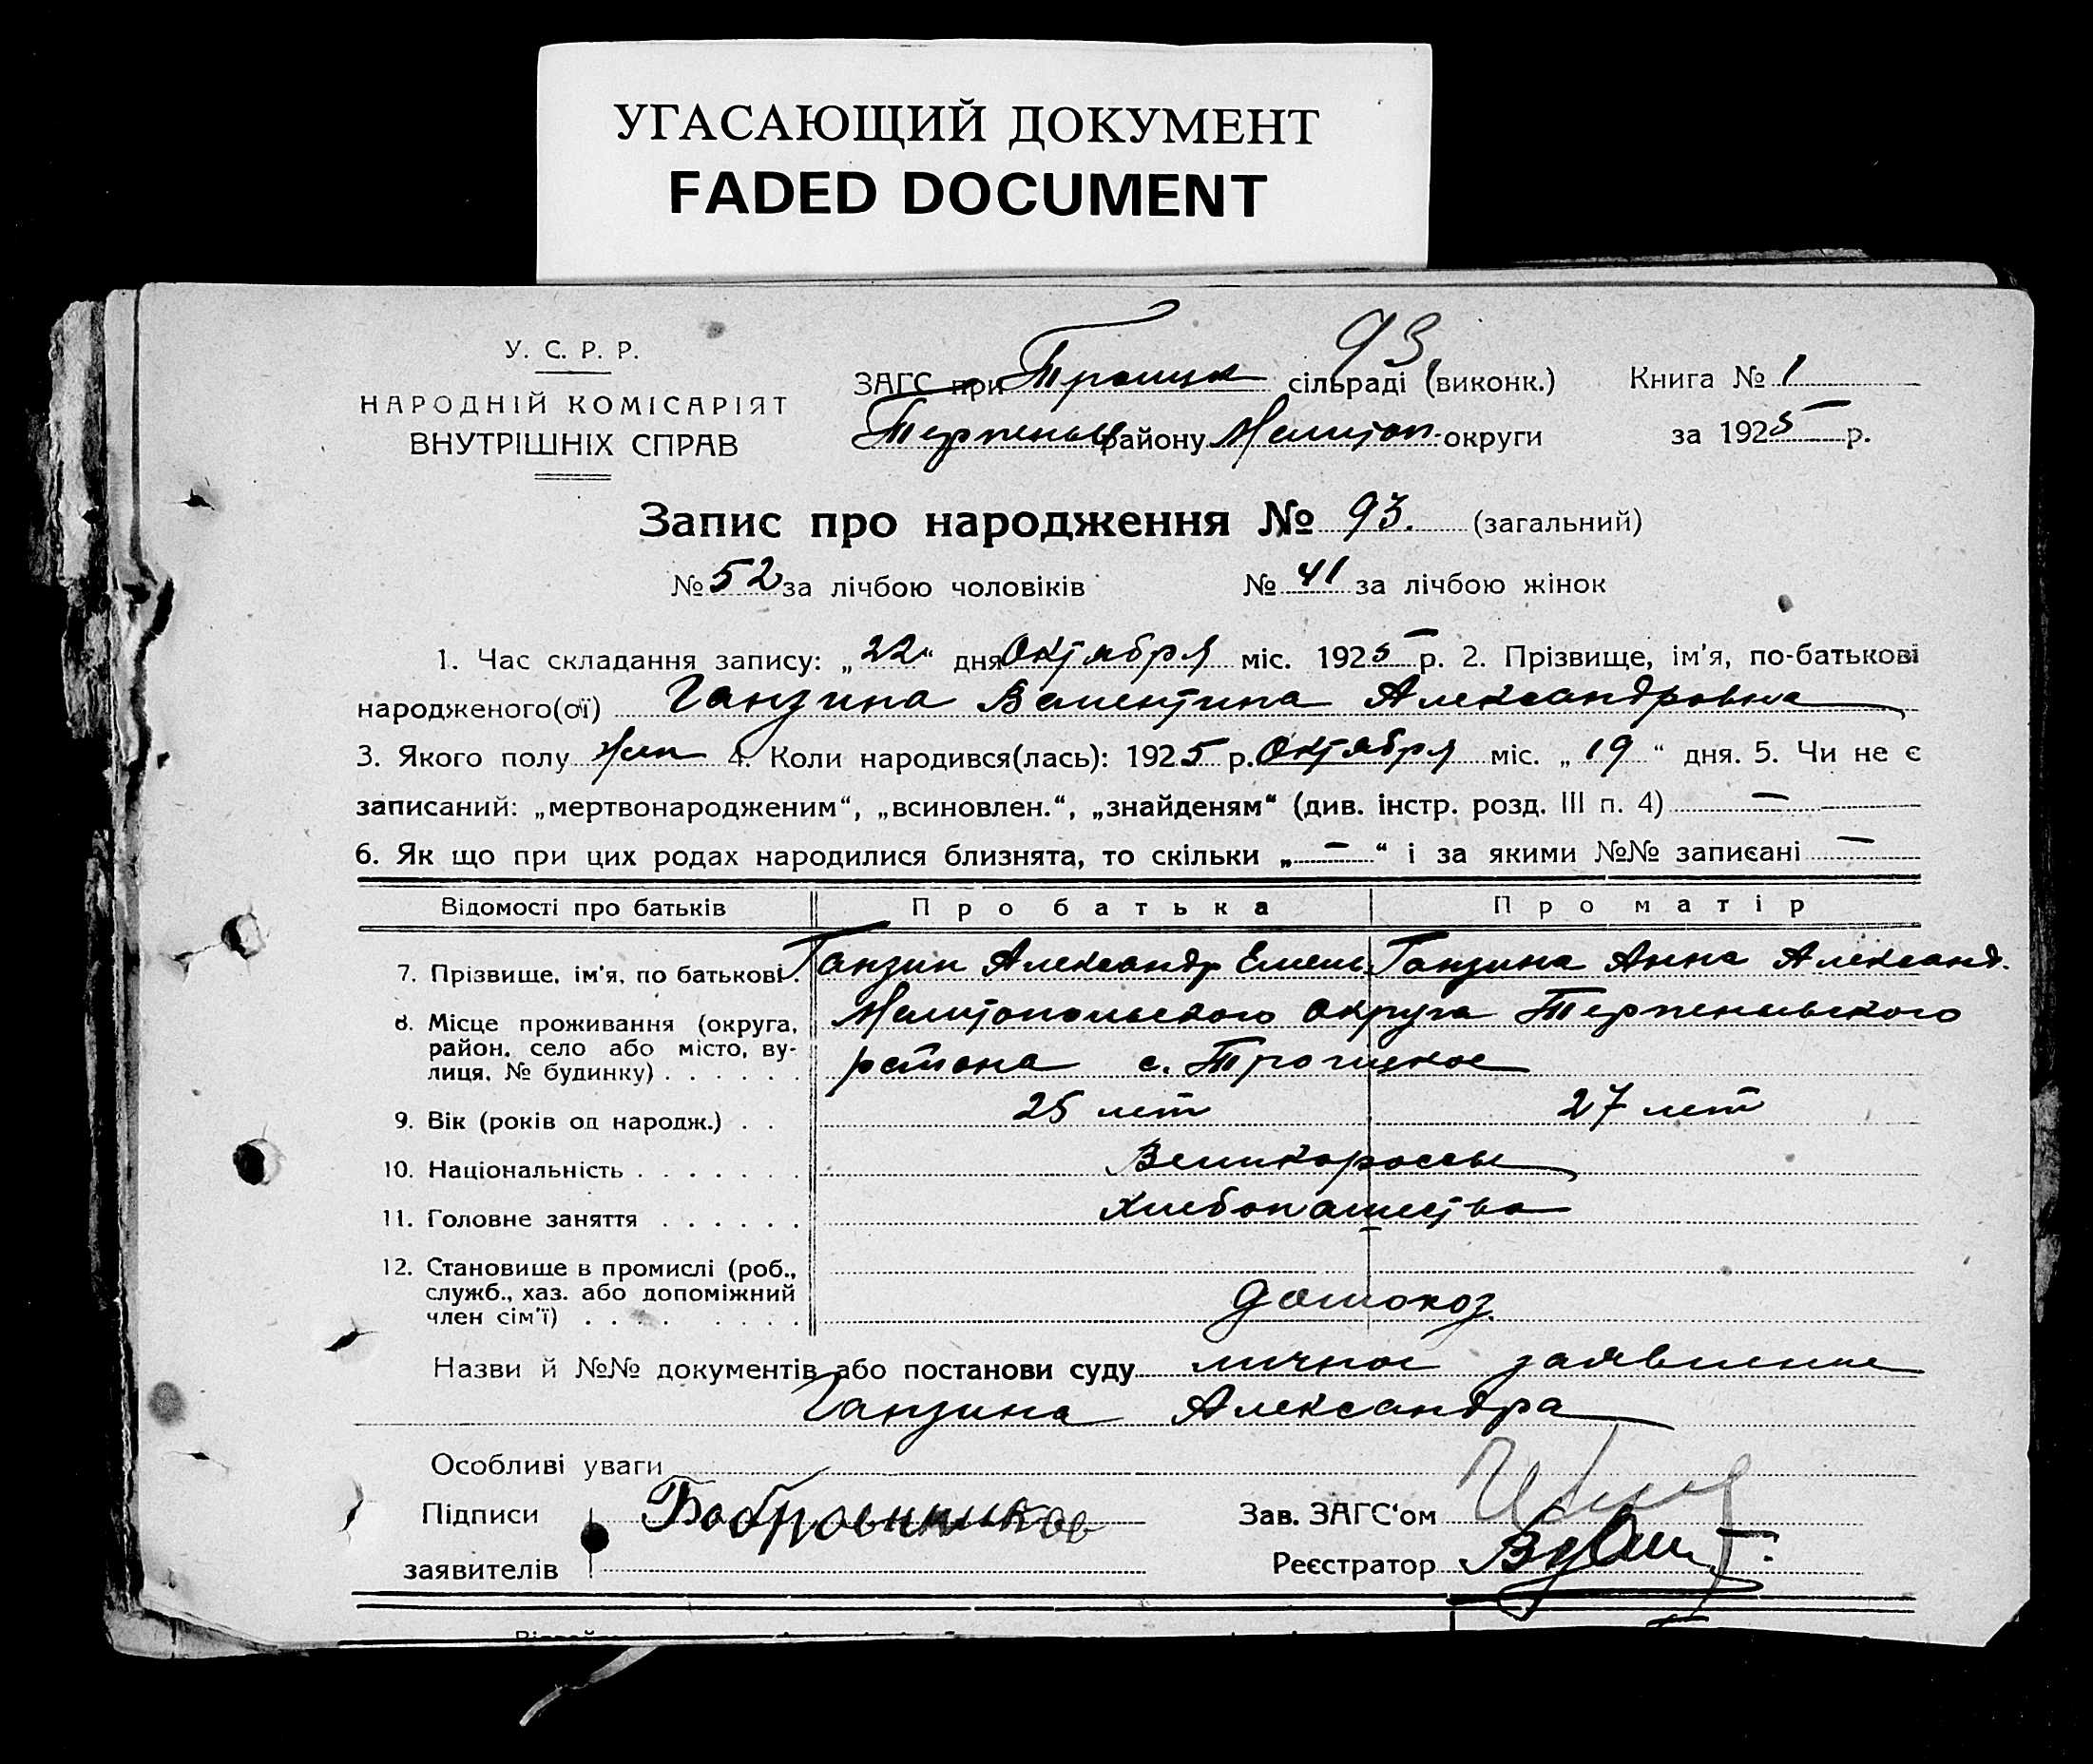 УГАСАЮЩИЙ ДОКУМЕНТ
FADED DOCUMENT
93.
У. С. Р. Р.
НАРОДНІЙ КОМІСАРІЯТ
ВНУТРІШНІХ СПРАВ
ЗАГС при Троицк сільраді (виконк.) Книга № 1
Терпеньев району Мелитоп. округи за 1925 р.
Запис про народження № 93. (загальний)
№ 52 за лічбою чоловіків № 41 за лічбою жінок
1. Час складання запису: „22“ дня Октября міс. 1925 р. 2. Прізвище, ім'я, по-батькові
народженого(ої) Ганзина Валентина Александровна
3. Якого полу жен 4. Коли народився(лась): 1925 р. Октября міс. „19“ дня. 5. Чи не є
записаний: „мертвонародженим“, „всиновлен.“, „знайденям“ (див. інстр. розд. III п. 4) —
6. Як що при цих родах народилися близнята, то скільки „—“ і за якими №№ записані —
Відомості про батьків Про батька Про матір
7. Прізвище, ім'я, по батькові. Ганзин Александр Емель. Ганзина Анна Александ.
8. Місце проживання (округа, район, село або місто, вулиця, № будинку) Мелитопольского Округа Терпеньевского
района с. Троицкое
9. Вік (років од народж.) 25 лет 27 лет
10. Національність Великороссы
11. Головне заняття Хлебопашество
12. Становише в промислі (роб.,
служб., хаз. або допоміжний
член сім'ї) домохоз.
Назви й №№ документів або постанови суду личное заявление
Ганзина Александра
Особливі уваги
Підписи Бобровников Зав. ЗАГС'ом
заявителів Реєстратор